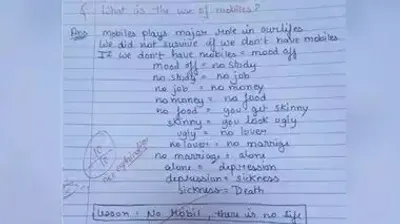 Q What is the use of mobiles?
Ans mobiles plays major role in our lifes
We did not survive if we don't have mobiles
If we don't have mobiles = mood off
mood off = no study
no study = no job
no job = no money
no money = no food
no food = you get skinny
skinny = you look ugly
ugly = no lover
no lover = no marrige
no marriage = alone
alone = depression
depression = sickness
Sickness = Death
10
10
nice explanation
Lesson: No Mobil, there is no life